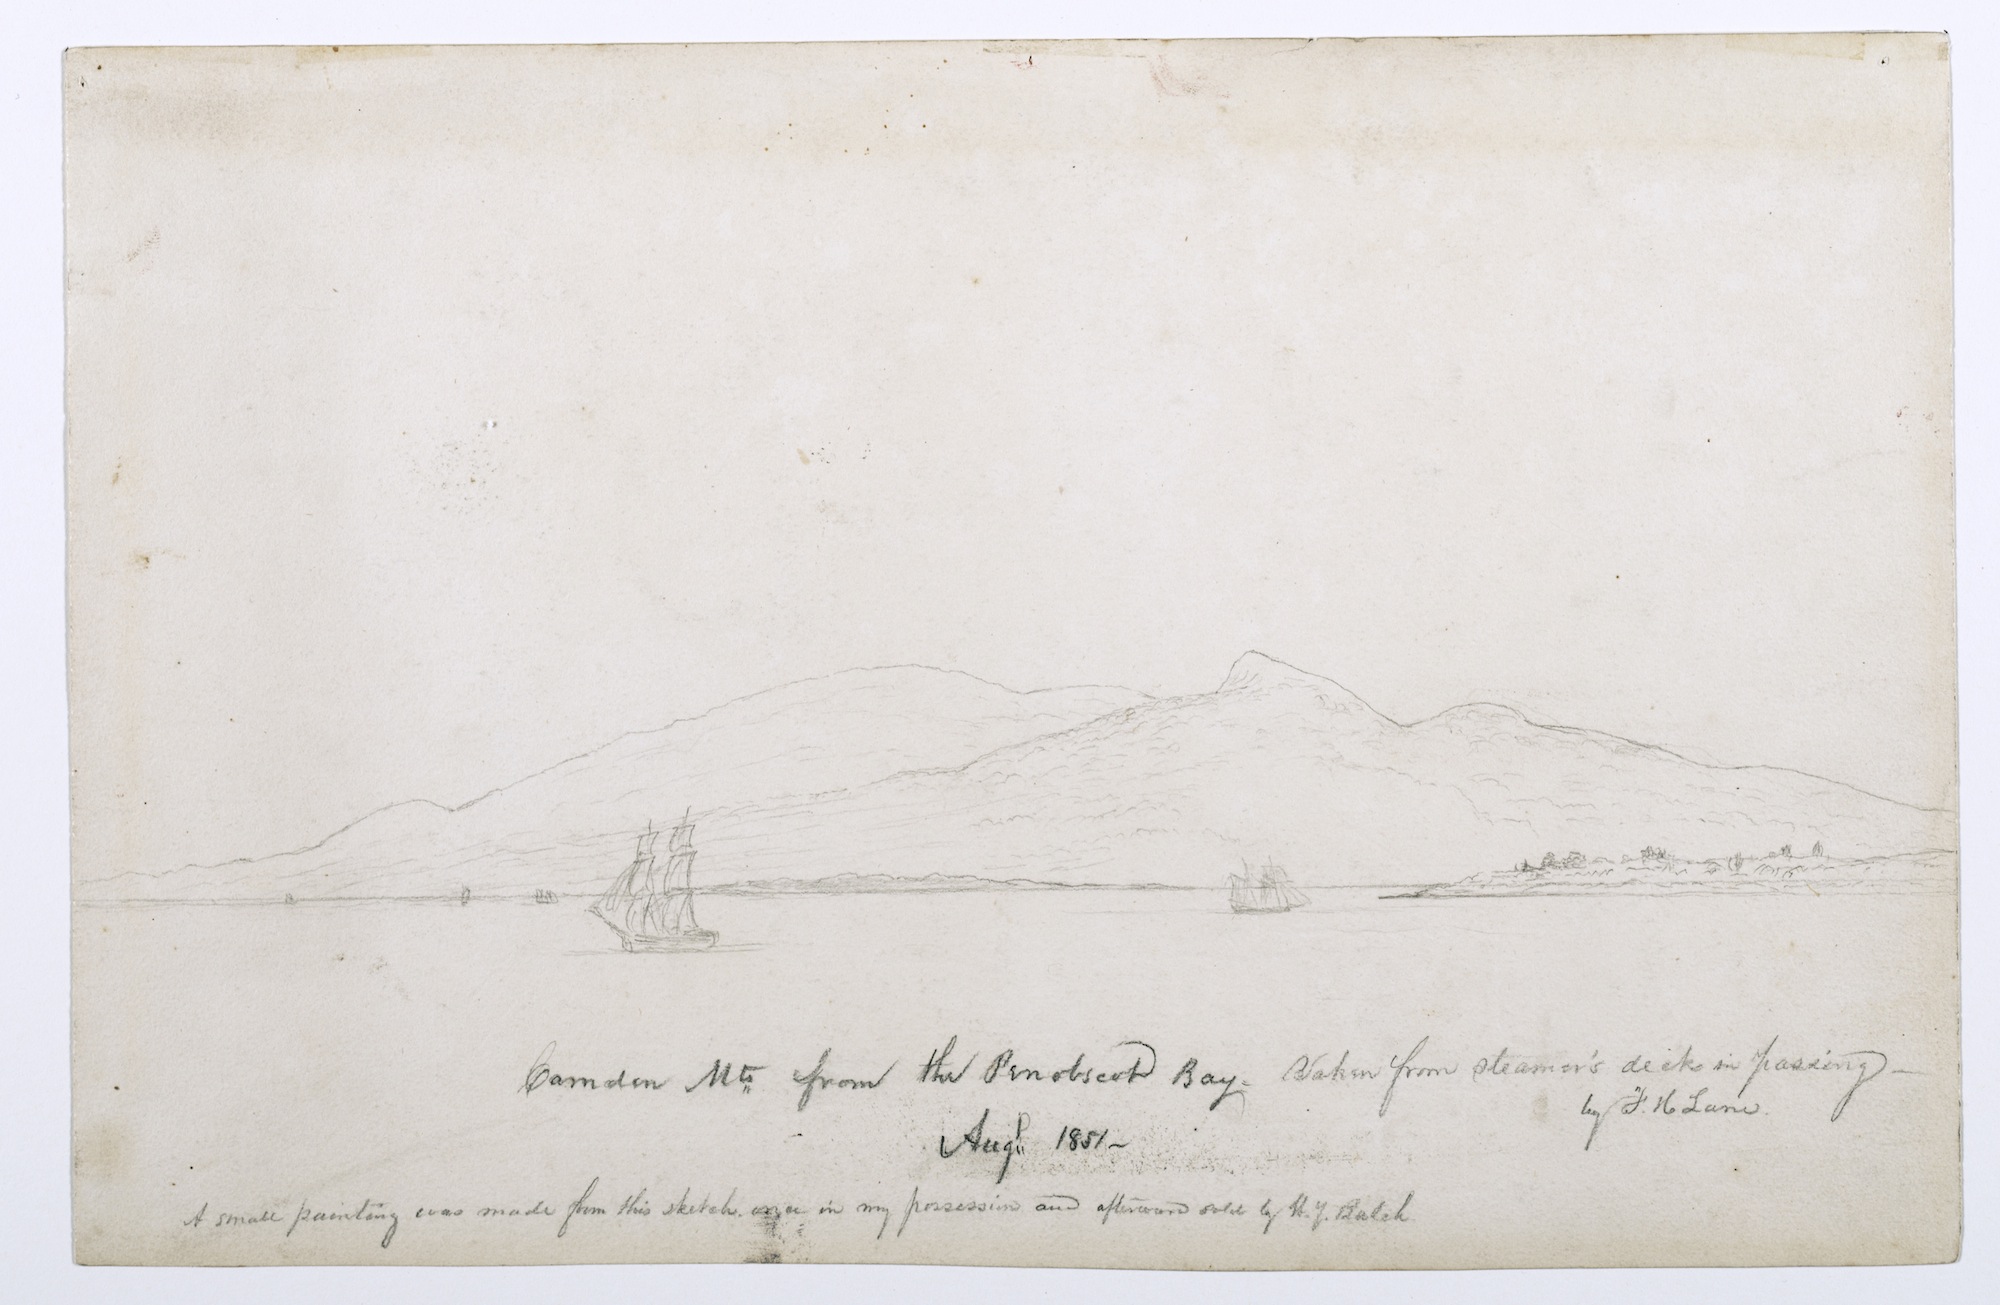 Camden Mts from the Penobscot Bay. Taken from steamer's deck in passing —
by F. H Lane.
Augt 1851 —
A small painting was made from this sketch once in my possession and afterward sold by H. Y. Balch